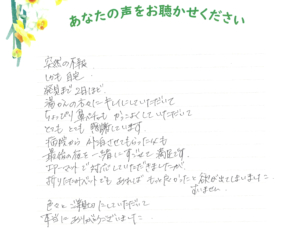 あなたの声をお聴かせください
突然の不幸。
しかも自宅。
葬儀まで2日ほど、
湯かんの方々にキレイにしていただいて
ちょっぴり鼻ペチャもかっこよくしていただいて
とても とても 感謝しています。
病院から外泊させてもらったんも
最後の夜を一緒にすごせて 満足です。
エアーマットで対応していただきましたが、
折りたたみベットでも あれば もっと良かったと欲が出てしまいました
すいません。
色々とご親切にしていただいて
本当にありがとうございました。